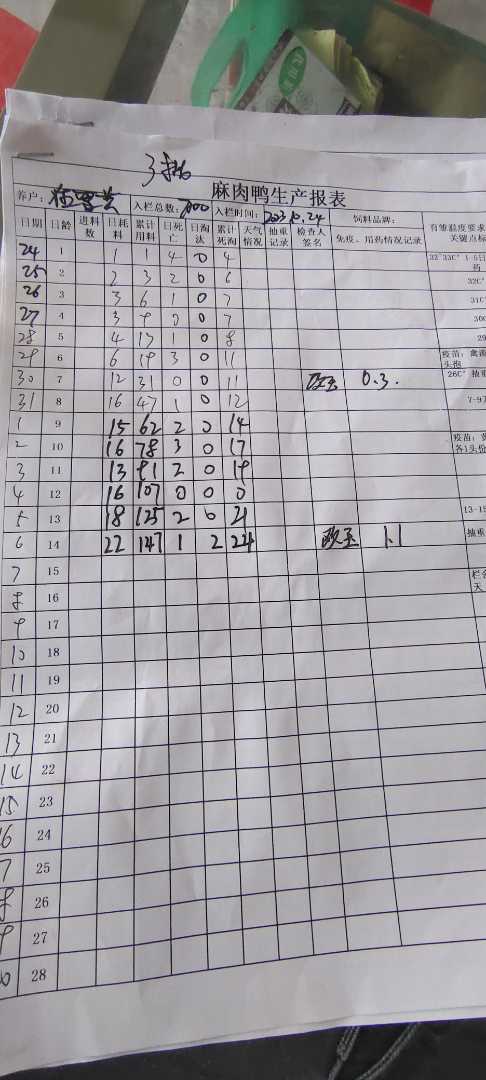 3批
麻肉鸭生产报表
养户: 入栏总数: 入栏时间: 饲料品牌:
日期 日龄 进料数 日耗料 累计用料 日死亡 日淘汰 累计死淘 天气情况 抽重记录 检查人签名 免疫、用药情况记录 育雏温度要求 关键点标
24 1 1 1 4 0 4 32~33C° 1-5日 药
25 2 2 3 2 0 6 32C°
26 3 3 6 1 0 7 31C°
27 4 3 9 0 0 7 30C
28 5 4 13 1 0 8 29
29 6 6 19 3 0 11 疫苗:禽流 头孢
30 7 12 31 0 0 11 0.3. 26C° 抽重
31 8 16 47 1 0 12 7-9天
1 9 15 62 2 0 14
2 10 16 78 3 0 17 疫苗: 各1头份
3 11 13 91 2 0 19
4 12 16 107 0 0 0
5 13 18 125 2 0 21 13-15
6 14 22 147 1 2 24 1.1 抽重
7 15 栏舍 天
8 16
9 17
10 18
11 19
12 20
13 21
14 22
15 23
16 24
7 25
8 26
9 27
0 28